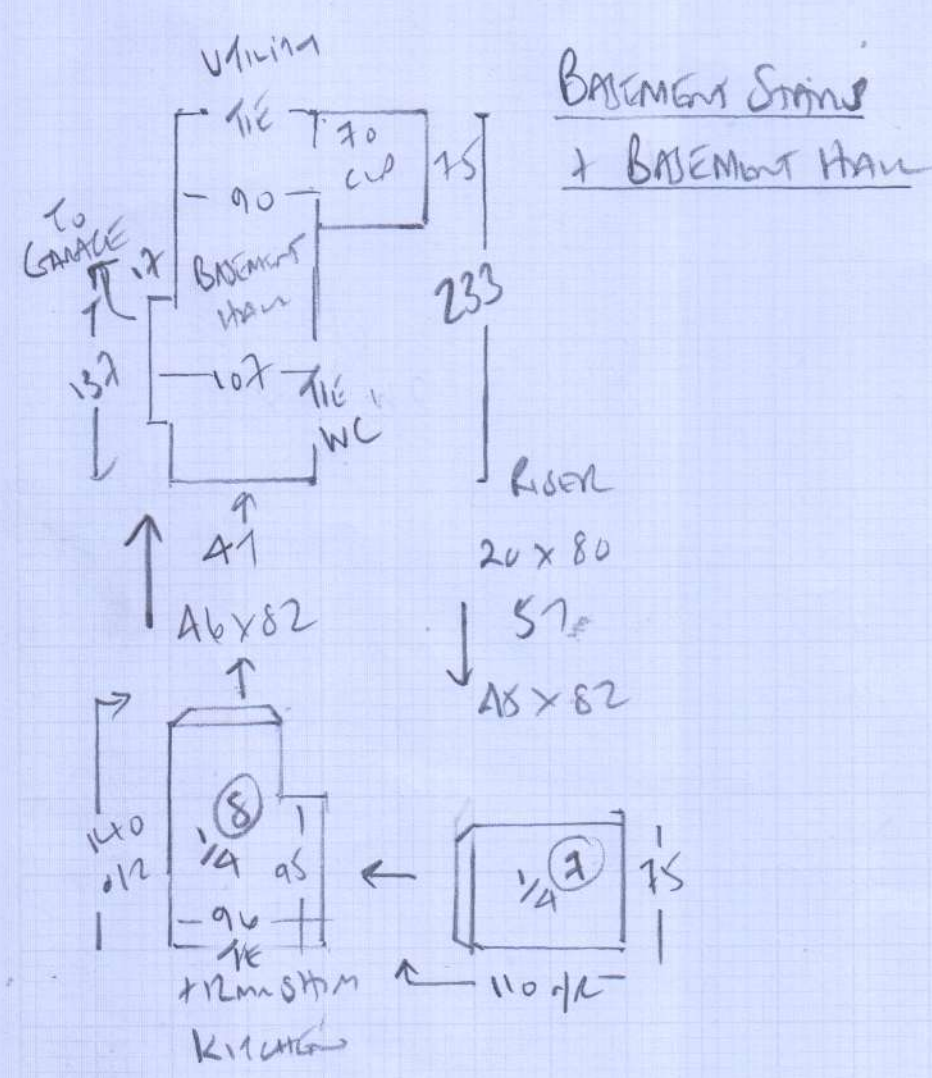 BASEMENT STAIRS
+ BASEMENT HALL
UTILITY
T/E
70
CUP
75
90
TO
GARAGE
.17
BASEMENT
HALL
233
137
107
T/E
WC
RISER
20 x 80
46 x 82
140
012
1/4
8
95
96
T/E
+12mm SHIM
KITCHEN
1/4
75
110